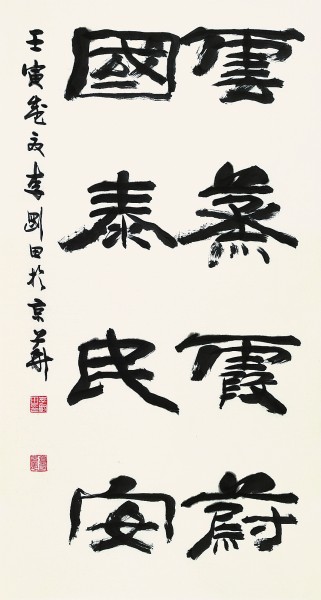 雲蒸霞蔚
國泰民安
壬寅歲夏李剛田於京華